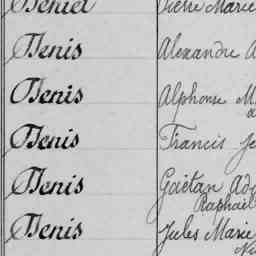 Deniel Pierre Marie
Denis Alexandre A
Denis Alphonse M
Denis Francis Je
Denis Gaëtan Ado
Raphaël
Denis Jules Marie